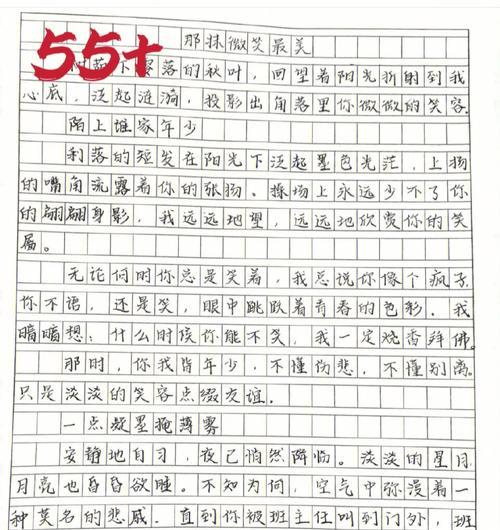 55+
那抹微笑最美
落的秋叶，回望着阳光折射到我
心底，泛起涟漪，投影出角落里你微微的笑容。
陌上谁家年少
利落的短发在阳光下泛起墨色光茫，上扬
的嘴角流露着你的张扬。操场上永远少不了你
的翩翩身影，我远远地望，远远地欣赏你的笑
属。
无论何时你总是笑着，我总说你像个疯子，
你不语，还是笑，眼中跳跃着青春的色彩。我
暗暗想：什么时候你能不笑，我一定烧香拜佛。
那时，你我皆年少，不懂伤悲，不懂别离。
只是淡淡的笑容点缀友谊.
一点凝墨掩薄雾
安静地自习，夜已悄然降临。淡淡的星月
月亮也昏昏欲睡。不知为何，空气中弥漫着一
种莫名的悲戚。直到你被班主任叫到门外，班